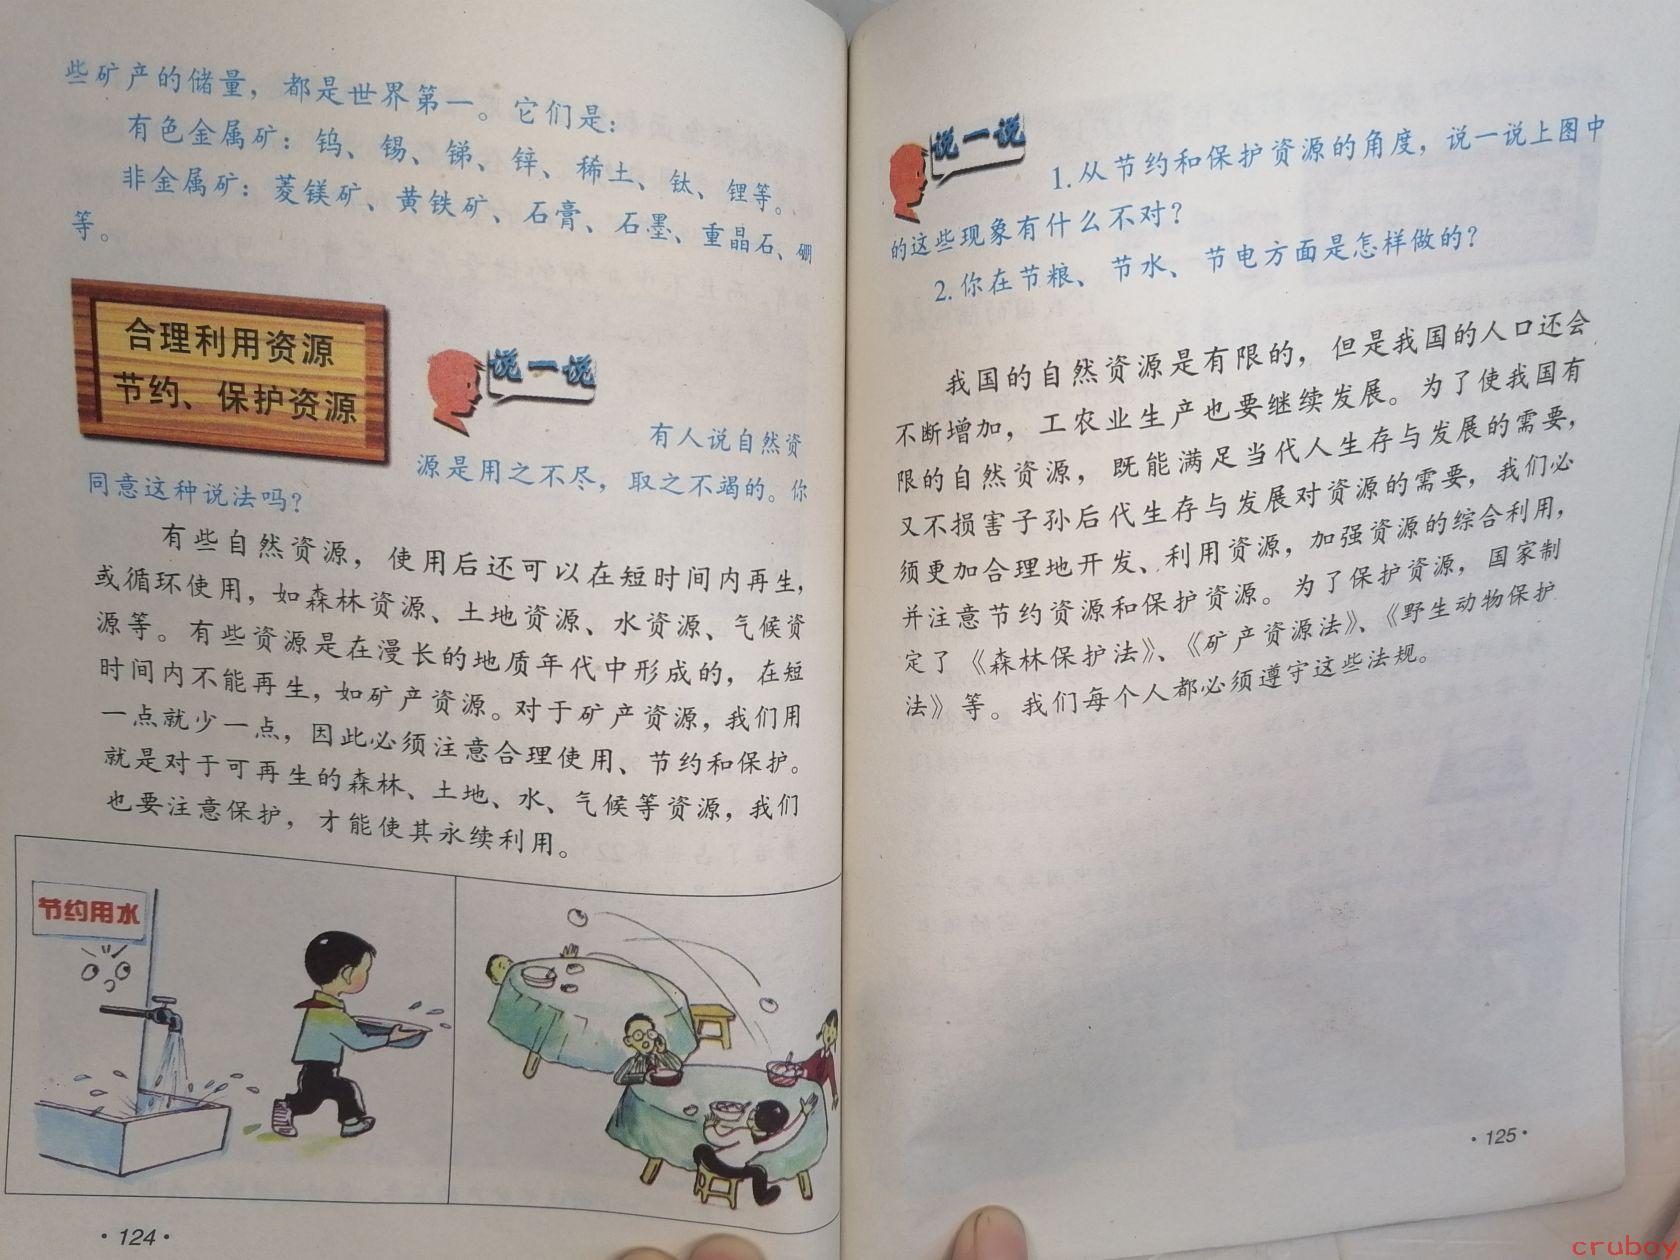 些矿产的储量，都是世界第一。它们是：
有色金属矿：钨、锡、锑、锌、稀土、钛、锂等。
非金属矿：菱镁矿、黄铁矿、石膏、石墨、重晶石、硼
等。
合理利用资源
节约、保护资源
说一说
有人说自然资
源是用之不尽，取之不竭的。你
同意这种说法吗？
有些自然资源，使用后还可以在短时间内再生，
或循环使用，如森林资源、土地资源、水资源、气候资
源等。有些资源是在漫长的地质年代中形成的，在短
时间内不能再生，如矿产资源。对于矿产资源，我们用
一点就少一点，因此必须注意合理使用、节约和保护。
就是对于可再生的森林、土地、水、气候等资源，我们
也要注意保护，才能使其永续利用。
节约用水
·124·
说一说
1.从节约和保护资源的角度，说一说上图中
的这些现象有什么不对？
2.你在节粮、节水、节电方面是怎样做的？
我国的自然资源是有限的，但是我国的人口还会
不断增加，工农业生产也要继续发展。为了使我国有
限的自然资源，既能满足当代人生存与发展的需要，
又不损害子孙后代生存与发展对资源的需要，我们必
须更加合理地开发、利用资源，加强资源的综合利用，
并注意节约资源和保护资源。为了保护资源，国家制
定了《森林保护法》、《矿产资源法》、《野生动物保护
法》等。我们每个人都必须遵守这些法规。
·125·
cruboy